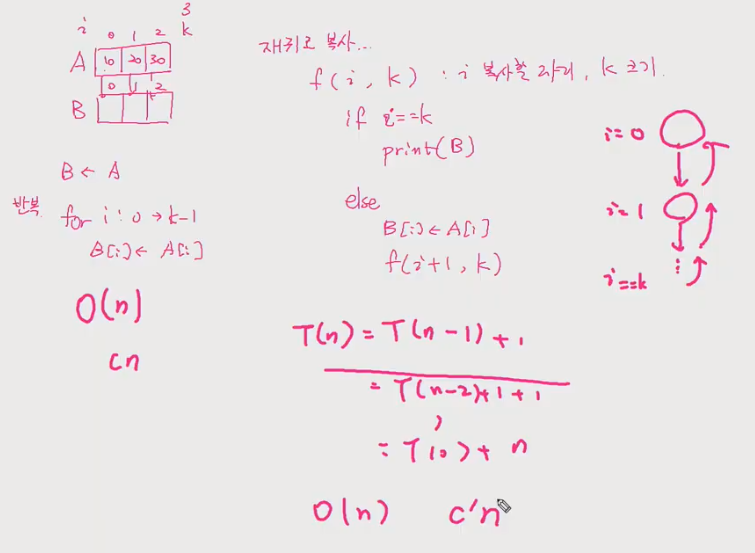 3
i 0 1 2 k
A 10 20 30
0 1 2
B
B ← A
반복
for i : 0 → k-1
B[i] ← A[i]
O(n)
cn
재귀로 복사...
f(i, k) : i 복사할 자리, k 크기.
if i==k
print(B)
else
B[i] ← A[i]
f(i+1, k)
i=0
i=1
⋮
i==k
T(n) = T(n-1) + 1
= T(n-2)+1+1
= T(0) + n
O(n) c'n